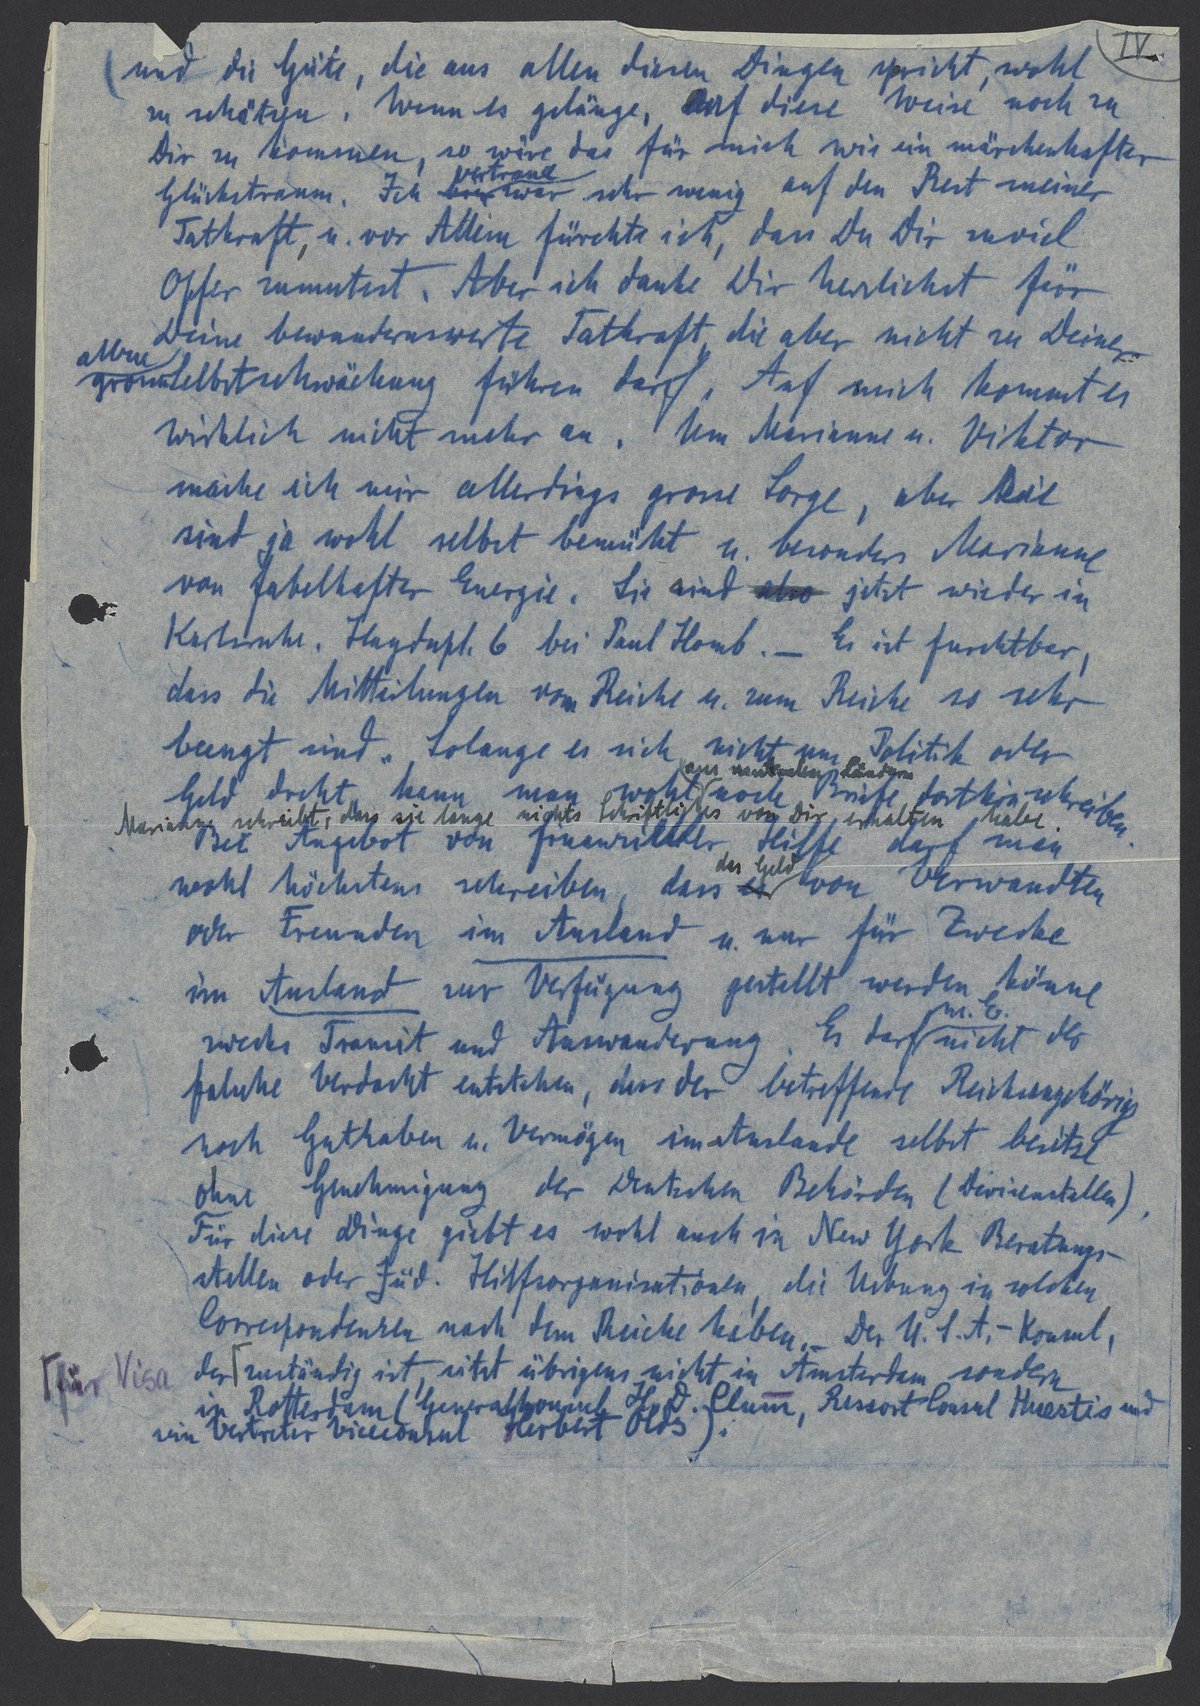 IV.
(und die Güte, die aus allen diesen Dingen spricht, wohl
zu schätzen. Wenn es gelänge, auf diese Weise noch zu
Dir zu kommen, so wäre das für mich wie ein märchenhafter
vertraue
Glückstraum. Ich zwar sehr wenig auf den Rest meiner
Tatkraft, u. vor Allem fürchte ich, dass Du Dir zuviel
Opfer zumutest. Aber ich danke Dir herzlichst für
Deine bewundernswerte Tatkraft, die aber nicht zu Deiner
allzu
grossen Selbstschwächung führen darf. Auf mich kommt es
wirklich nicht mehr an. Um Marianne u. Viktor
mache ich mir allerdings grosse Sorge, aber die
sind ja wohl selbst bemüht u. besonders Marianne
von fabelhafter Energie. Sie sind also jetzt wieder in
Karlsruhe. Haydnpl. 6 bei Paul Homb. — Es ist furchtbar,
dass die Mitteilungen vom Reiche u. zum Reiche so sehr
beengt sind. Solange es sich nicht um Politik oder
aus neutralen Ländern
Geld dreht, kann man wohl noch Briefe dorthin schreiben.
Marianne schreibt, dass sie lange nichts Schriftliches von Dir erhalten habe.
Bei Angebot von finanzieller Hilfe darf man
das Geld
wohl höchstens schreiben, dass es von Verwandten
oder Freunden im Ausland u. nur für Zwecke
im Ausland zur Verfügung gestellt werden könne
m. E.
zwecks Transit und Auswanderung. Es darf nicht der
falsche Verdacht entstehen, dass der betreffende Reichsangehörige
noch Guthaben u. Vermögen im Auslande selbst besitze
ohne Genehmigung der Deutschen Behörden (Devisenstellen).
Für diese Dinge giebt es wohl auch in New York Beratungs-
stellen oder Jüd. Hilfsorganisationen, die Uebung in solchen
Correspondenzen nach dem Reiche haben. — Der U.S.A.-Konsul,
⌈für Visa
der ⌈zuständig ist, sitzt übrigens nicht in Amsterdam sondern
in Rotterdam (Generalkonsul H. D. Clum, Ressort Consul Huestis und
sein Vertreter Viceconsul Herbert Olds).